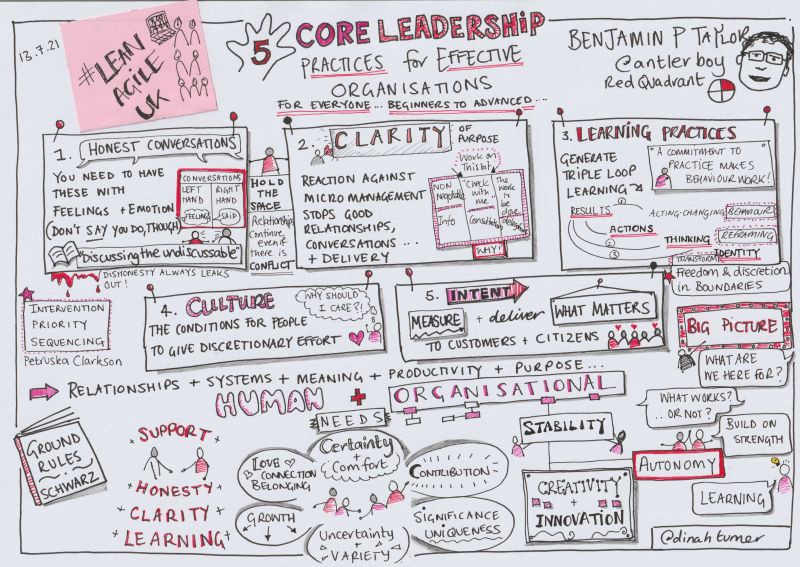 13.7.21
#LEAN
AGILE
UK
5 CORE LEADERSHIP
PRACTICES for EFFECTIVE
ORGANISATIONS
FOR EVERYONE... BEGINNERS TO ADVANCED...
BENJAMIN P TAYLOR
@antlerboy
Red Quadrant
1. HONEST CONVERSATIONS
YOU NEED TO HAVE
THESE WITH
FEELINGS + EMOTION
(DON'T SAY YOU DO, THOUGH)
"Discussing the undiscussable"
CONVERSATIONS
LEFT HAND
RIGHT HAND
FEELINGS
SAID
DISHONESTY ALWAYS LEAKS
OUT!
HOLD
THE
SPACE
Relationships
Continue
even if
there is
CONFLICT
2. CLARITY OF PURPOSE
REACTION AGAINST
MICRO MANAGEMENT
STOPS GOOD
RELATIONSHIPS,
CONVERSATIONS...
+ DELIVERY
Work on
This bit
NON
Negotiable
Info
"Check
with
me
Consultation
The
work
to
be
done
WHY?
3. LEARNING PRACTICES
GENERATE
TRIPLE LOOP
LEARNING
"A COMMITMENT TO
PRACTICE MAKES
BEHAVIOUR WORK!
RESULTS
ACTING-CHANGING BEHAVIOUR
ACTIONS
THINKING
REFRAMING
IDENTITY
TRANSFORM
1
2
3
Freedom & discretion
in BOUNDARIES
INTERVENTION
PRIORITY
SEQUENCING
Petruska Clarkson
4. CULTURE
WHY SHOULD
I CARE?!
THE CONDITIONS FOR PEOPLE
TO GIVE DISCRETIONARY EFFORT
5. INTENT
MEASURE + deliver WHAT MATTERS
TO CUSTOMERS + CITIZENS
BIG PICTURE
WHAT ARE
WE HERE FOR?
WHAT WORKS?
..OR NOT?
BUILD ON
STRENGTH
AUTONOMY
LEARNING
RELATIONSHIPS + SYSTEMS + MEANING + PRODUCTIVITY + PURPOSE...
HUMAN + ORGANISATIONAL
NEEDS
GROUND
RULES
SCHWARZ
SUPPORT
HONESTY
CLARITY
LEARNING
LOVE
CONNECTION
BELONGING
Certainty
+
Comfort
CONTRIBUTION
GROWTH
Uncertainty
+
VARIETY
SIGNIFICANCE
UNIQUENESS
STABILITY
CREATIVITY
+
INNOVATION
@dinahturner